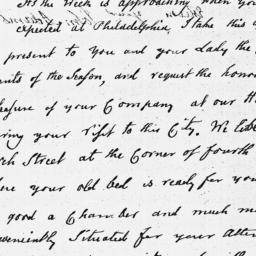 As the Week is approaching when you
expected at Philadelphia, I take this
present to You and your Lady the
nts of the Season, and request the hono
leasure of your Company at our H
ring your visit to this City. We
ch Street at the Corner of fourth
ere your old bed is ready for you
good a Chamber and much m
veniently Situated for your Atten